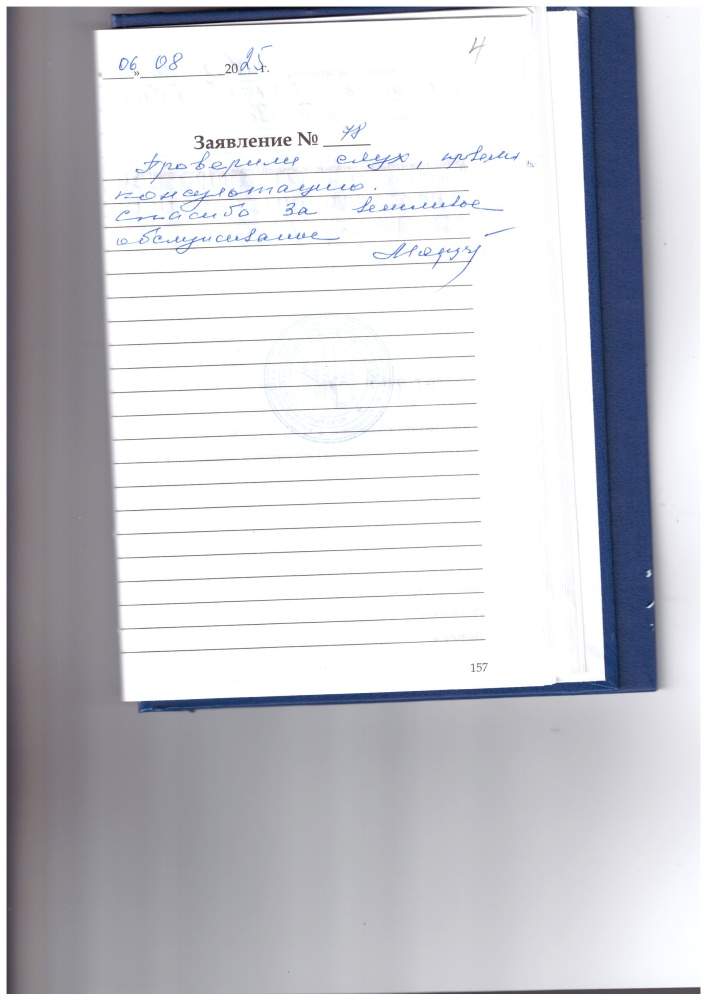 4
«06» 08 2025 г.
Заявление № 78
Проверили слух,
консультацию.
Спасибо за вежливое
обслуживание
157